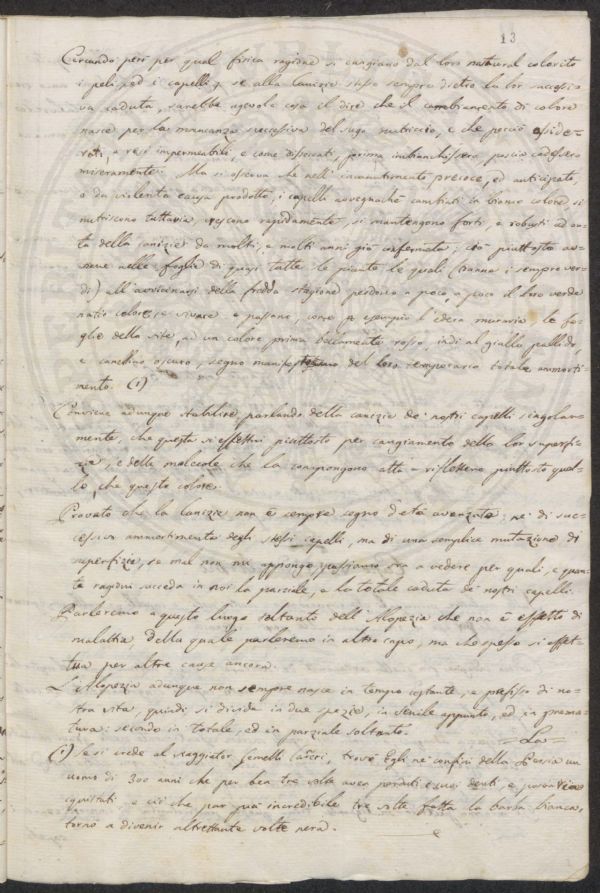 13
Cercando però per qual fisica ragione si cangiano dal loro natural colorito
i peli, ed i capelli, se alla canizie stesse sempre dietro la lor successi-
va caduta, sarebbe agevole cosa il dire che il cambiamento di colore
nasce per la mancanza successiva del sugo nutriccio, e che perciò
resi impermeabili, e come disseccati, prima imbianchissero, poscia cadessero
miseramente. Ma si osserva che nell' incanutimento precoce, ed anticipato,
o da violenta causa prodotto, i capelli avvegnachè cambiati in bianco colore, si
nutriscono tuttavia, crescono rapidamente, si mantengono forti, e robusti ad on-
ta della canizie da molti, e molti anni già confermata; ciò piuttosto av-
viene nelle foglie di quasi tutte le piante le quali (tranne i sempre ver-
di) all' avvicinarsi della fredda stagione perdono a poco, a poco il loro verde
natio colore, e vivace e passano, come p esempio l' edera muraria, le fo-
glie della vite, ad un colore prima bellamente rosso, indi al giallo pallido,
e canellino oscuro, segno manifesto del loro temporario totale ammorti-
mento. (1)
Conviene adunque stabilire, parlando della canizie de' nostri capelli singolar-
mente, che questa si effettui piuttosto per cangiamento della lor superfi-
zie, e delle molecole che la compongono atte a riflettere piuttosto quel-
lo, che questo colore.
Provato che la Canizie non è sempre segno d' età avanzata; nè di suc-
cessivo ammortimento degli stessi capelli, ma di una semplice mutazione di
superfizie, se mal non mi appongo passiamo ora a vedere per quali, e quan-
te ragioni succeda in noi la parziale, e la totale caduta de' nostri capelli.
Parleremo a questo luogo soltanto dell' Alopezia che non è effetto di
malattia, della quale parleremo in altro capo, ma che spesso si effet-
tua per altre cause ancora.
L' Alopezia adunque non sempre nasce in tempo costante, e prefisso di no-
stra vita, quindi si divide in due spezie, in senile appunto, ed in prema-
tura: secondo in totale, ed in parziale soltanto.
La
(1) Se si crede al viaggiator Gemelli Careri, trovò Egli ne' confini della Persia un
uomo di 300 anni che per ben tre volte avea perduti i suoi denti, e
e ciò che par più incredibile tre volte fatta la barba bianca,
tornò a divenir altrettante volte nera.